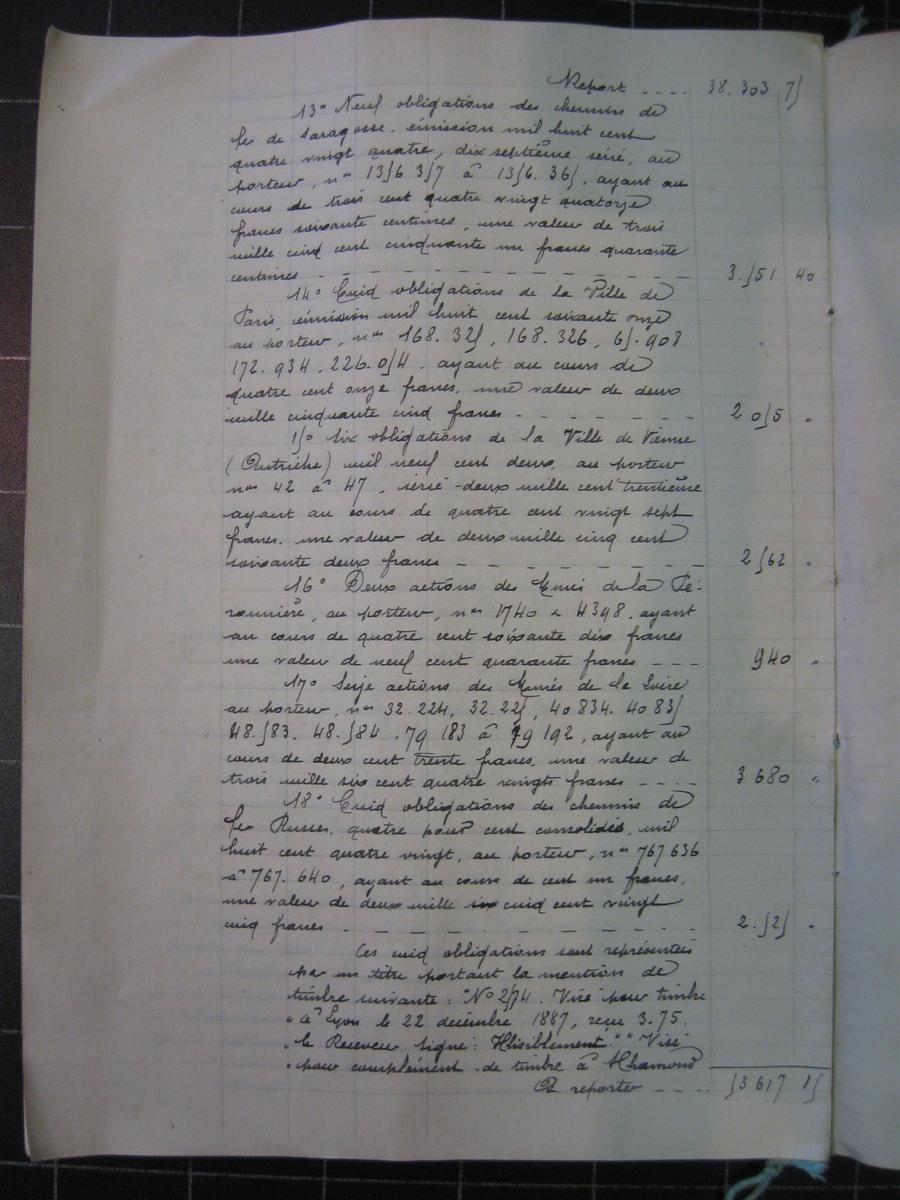 Report .... 38.303 75
13° Neuf obligations des chemins de
fer de Saragosse, émission mil huit cent
quatre vingt quatre, dix septième série, au
porteur, nos 1356 357 à 1356.365, ayant au
cours de trois cent quatre vingt quatorze
francs soixante centimes, une valeur de trois
mille cinq cent cinquante un francs quarante
centimes - - - - - - - - - 3.551 40
14° Cinq obligations de la Ville de
Paris, émission mil huit cent soixante onze
au porteur, nos 168.325, 168.326, 65.908
172.934. 226.054. ayant au cours de
quatre cent onze francs, une valeur de deux
mille cinquante cinq francs - - - - - - 2 055 "
15° Six obligations de la Ville de Vienne
(Autriche) mil neuf cent deux, au porteur
nos 42 à 47, série deux mille cent trentième
ayant au cours de quatre cent vingt sept
francs, une valeur de deux mille cinq cent
soixante deux francs - - - - - - - - 2 562 "
16° Deux actions des Mines de la Pé-
ronnière, au porteur, nos 1740 & 4398, ayant
au cours de quatre cent soixante dix francs
une valeur de neuf cent quarante francs - - - 940 "
17° Seize actions des Mines de la Loire
au porteur, nos 32.224, 32.225, 40834. 40835
48.583. 48.584. 79 183 à 79 192, ayant au
cours de deux cent trente francs, une valeur de
trois mille six cent quatre vingts francs - - - - 3 680 "
18° Cinq obligations des chemins de
fer Russes, quatre pour cent consolidés, mil
huit cent quatre vingt, au porteur, nos 767 636
à 767.640, ayant au cours de cent un francs,
une valeur de deux mille cinq cent vingt
cinq francs - - - - - - - - - 2.525 "
Ces cinq obligations sont représentées
par un titre portant la mention de
timbre suivante : "No 2574. Visé pour timbre
" à Lyon le 22 décembre 1887, reçu 3.75.
" le Receveur signé : Illisiblement." "Visé
" pour complément de timbre à St Chamond
A reporter - - - - 53 617 15